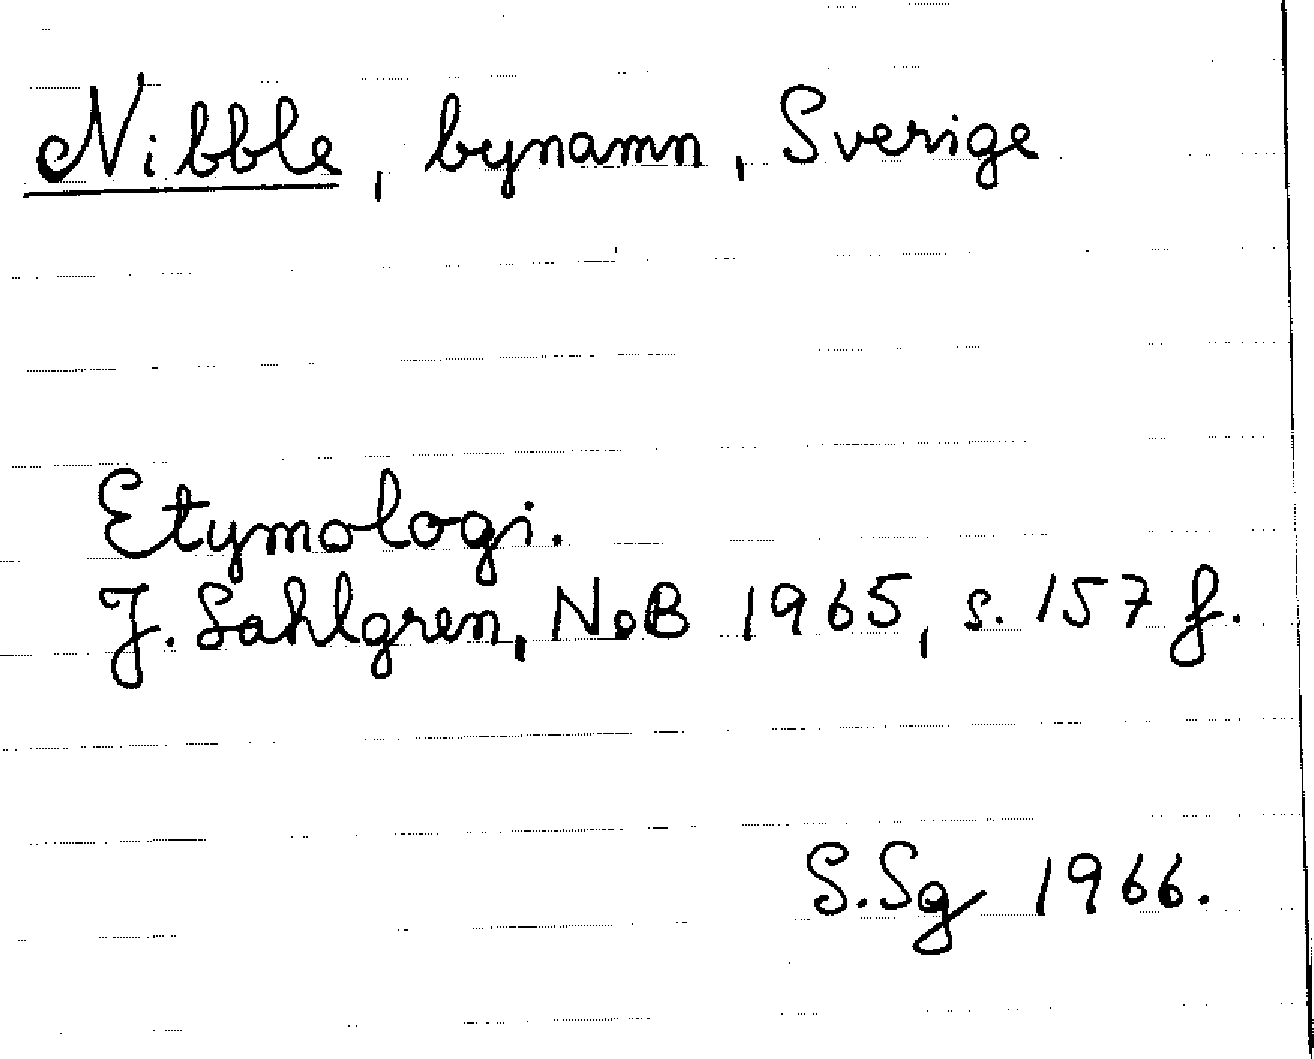 Nibble, bynamn, Sverige
Etymologi.
J. Sahlgren, NoB 1965, s. 157 f.
S.Sg 1966.